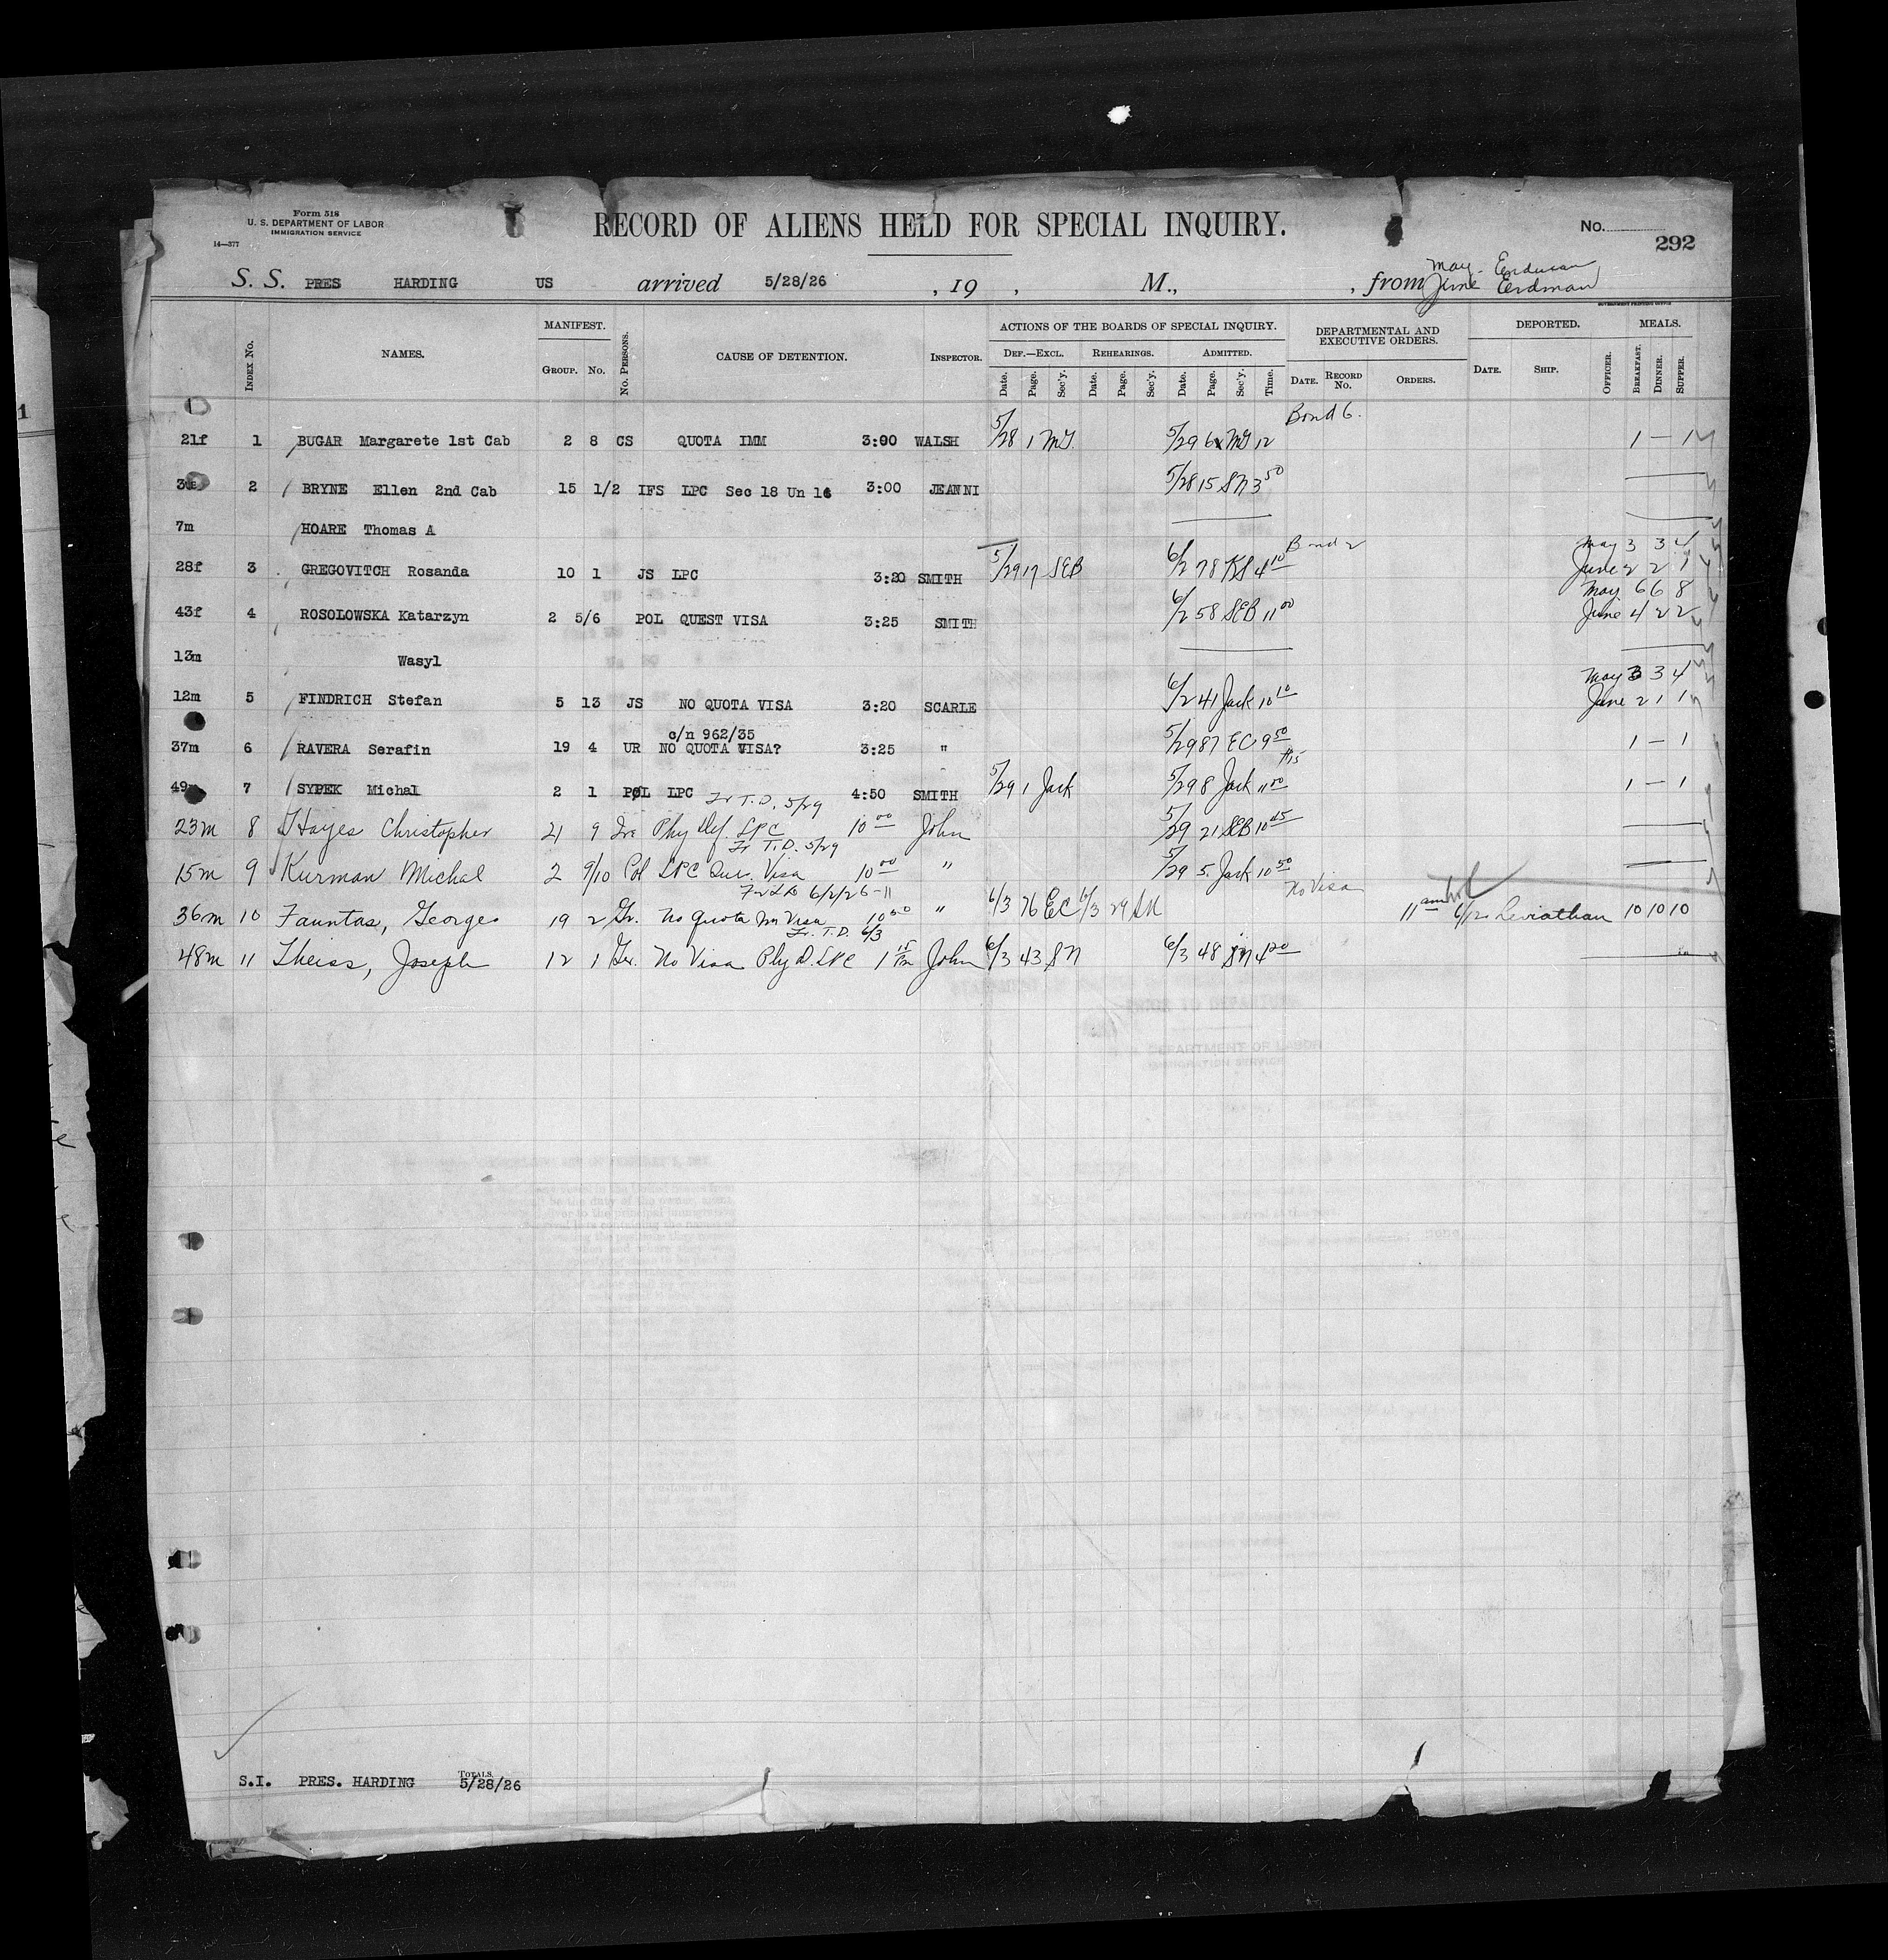 Form 518
U. S. DEPARTMENT OF LABOR
IMMIGRATION SERVICE
14—377
RECORD OF ALIENS HELD FOR SPECIAL INQUIRY.
No.
292
S. S. PRES HARDING US arrived 5/28/26 , 19 , M., , from May
June Erdman
GOVERNMENT PRINTING OFFICE
Index No. NAMES. MANIFEST. Group. No. No. Persons. CAUSE OF DETENTION. Inspector. ACTIONS OF THE BOARDS OF SPECIAL INQUIRY. DEPARTMENTAL AND EXECUTIVE ORDERS. DEPORTED. MEALS.
Def.—Excl. Rehearings. Admitted.
Date. Page. Sec'y. Date. Page. Sec'y. Date. Page. Sec'y. Time. Date. Record No. Orders. Date. Ship. Officer. Breakfast. Dinner. Supper.
Bond 6.
21f 1 BUGAR Margarete 1st Cab 2 8 CS QUOTA IMM 3:00 WALSH 5/28 1 MG 5/29 6 MG 12 1 — 1
2 BRYNE Ellen 2nd Cab 15 1/2 IFS LPC Sec 18 Un 16 3:00 JEANNI 5/28 15 SN 3 50
7m HOARE Thomas A
Bond 2 May 3 3 4
28f 3 GREGOVITCH Rosanda 10 1 JS LPC 3:20 SMITH 5/29 17 SEB 6/2 78 KS 4 10 June 2 2 1
May 6 6 8
43f 4 ROSOLOWSKA Katarzyn 2 5/6 POL QUEST VISA 3:25 SMITH 6/2 58 SEB 11 00 June 4 2 2
13m Wasyl
May 3 3 4
12m 5 FINDRICH Stefan 5 13 JS NO QUOTA VISA 3:20 SCARLE 6/2 41 Jack 10 10 June 2 1 1
c/n 962/35
37m 6 RAVERA Serafin 19 4 UR NO QUOTA VISA? 3:25 " 5/29 87 EC 9 50 1 — 1
49 7 SYPEK Michal 2 1 POL LPC 4:50 SMITH 5/29 1 Jack 5/29 8 Jack 11 00 1 — 1
Fr T.D. 5/29
23m 8 Hayes Christopher 21 9 Ire Phy Def. LPC 10 00 John 5/29 21 SEB 10 45
Fr T.D. 5/29
15m 9 Kurman Michal 2 9/10 Pol LPC Que. Visa 10 00 " 5/29 5 Jack 10 50
6/2/26-11 No Visa
36m 10 Fauntas, George 19 2 Gr. No Quota Im Visa 10 50 " 6/3 76 EC 6/3 29 SN 11 am 6/12 Leviathan 10 10 10
Fr. T.D. 6/3
48m 11 Theiss, Joseph 12 1 Ger. No Visa Phy D. LPC 1 15 pm John 6/3 43 SN 6/3 48 SN 4 20
Totals
S.I. PRES. HARDING 5/28/26